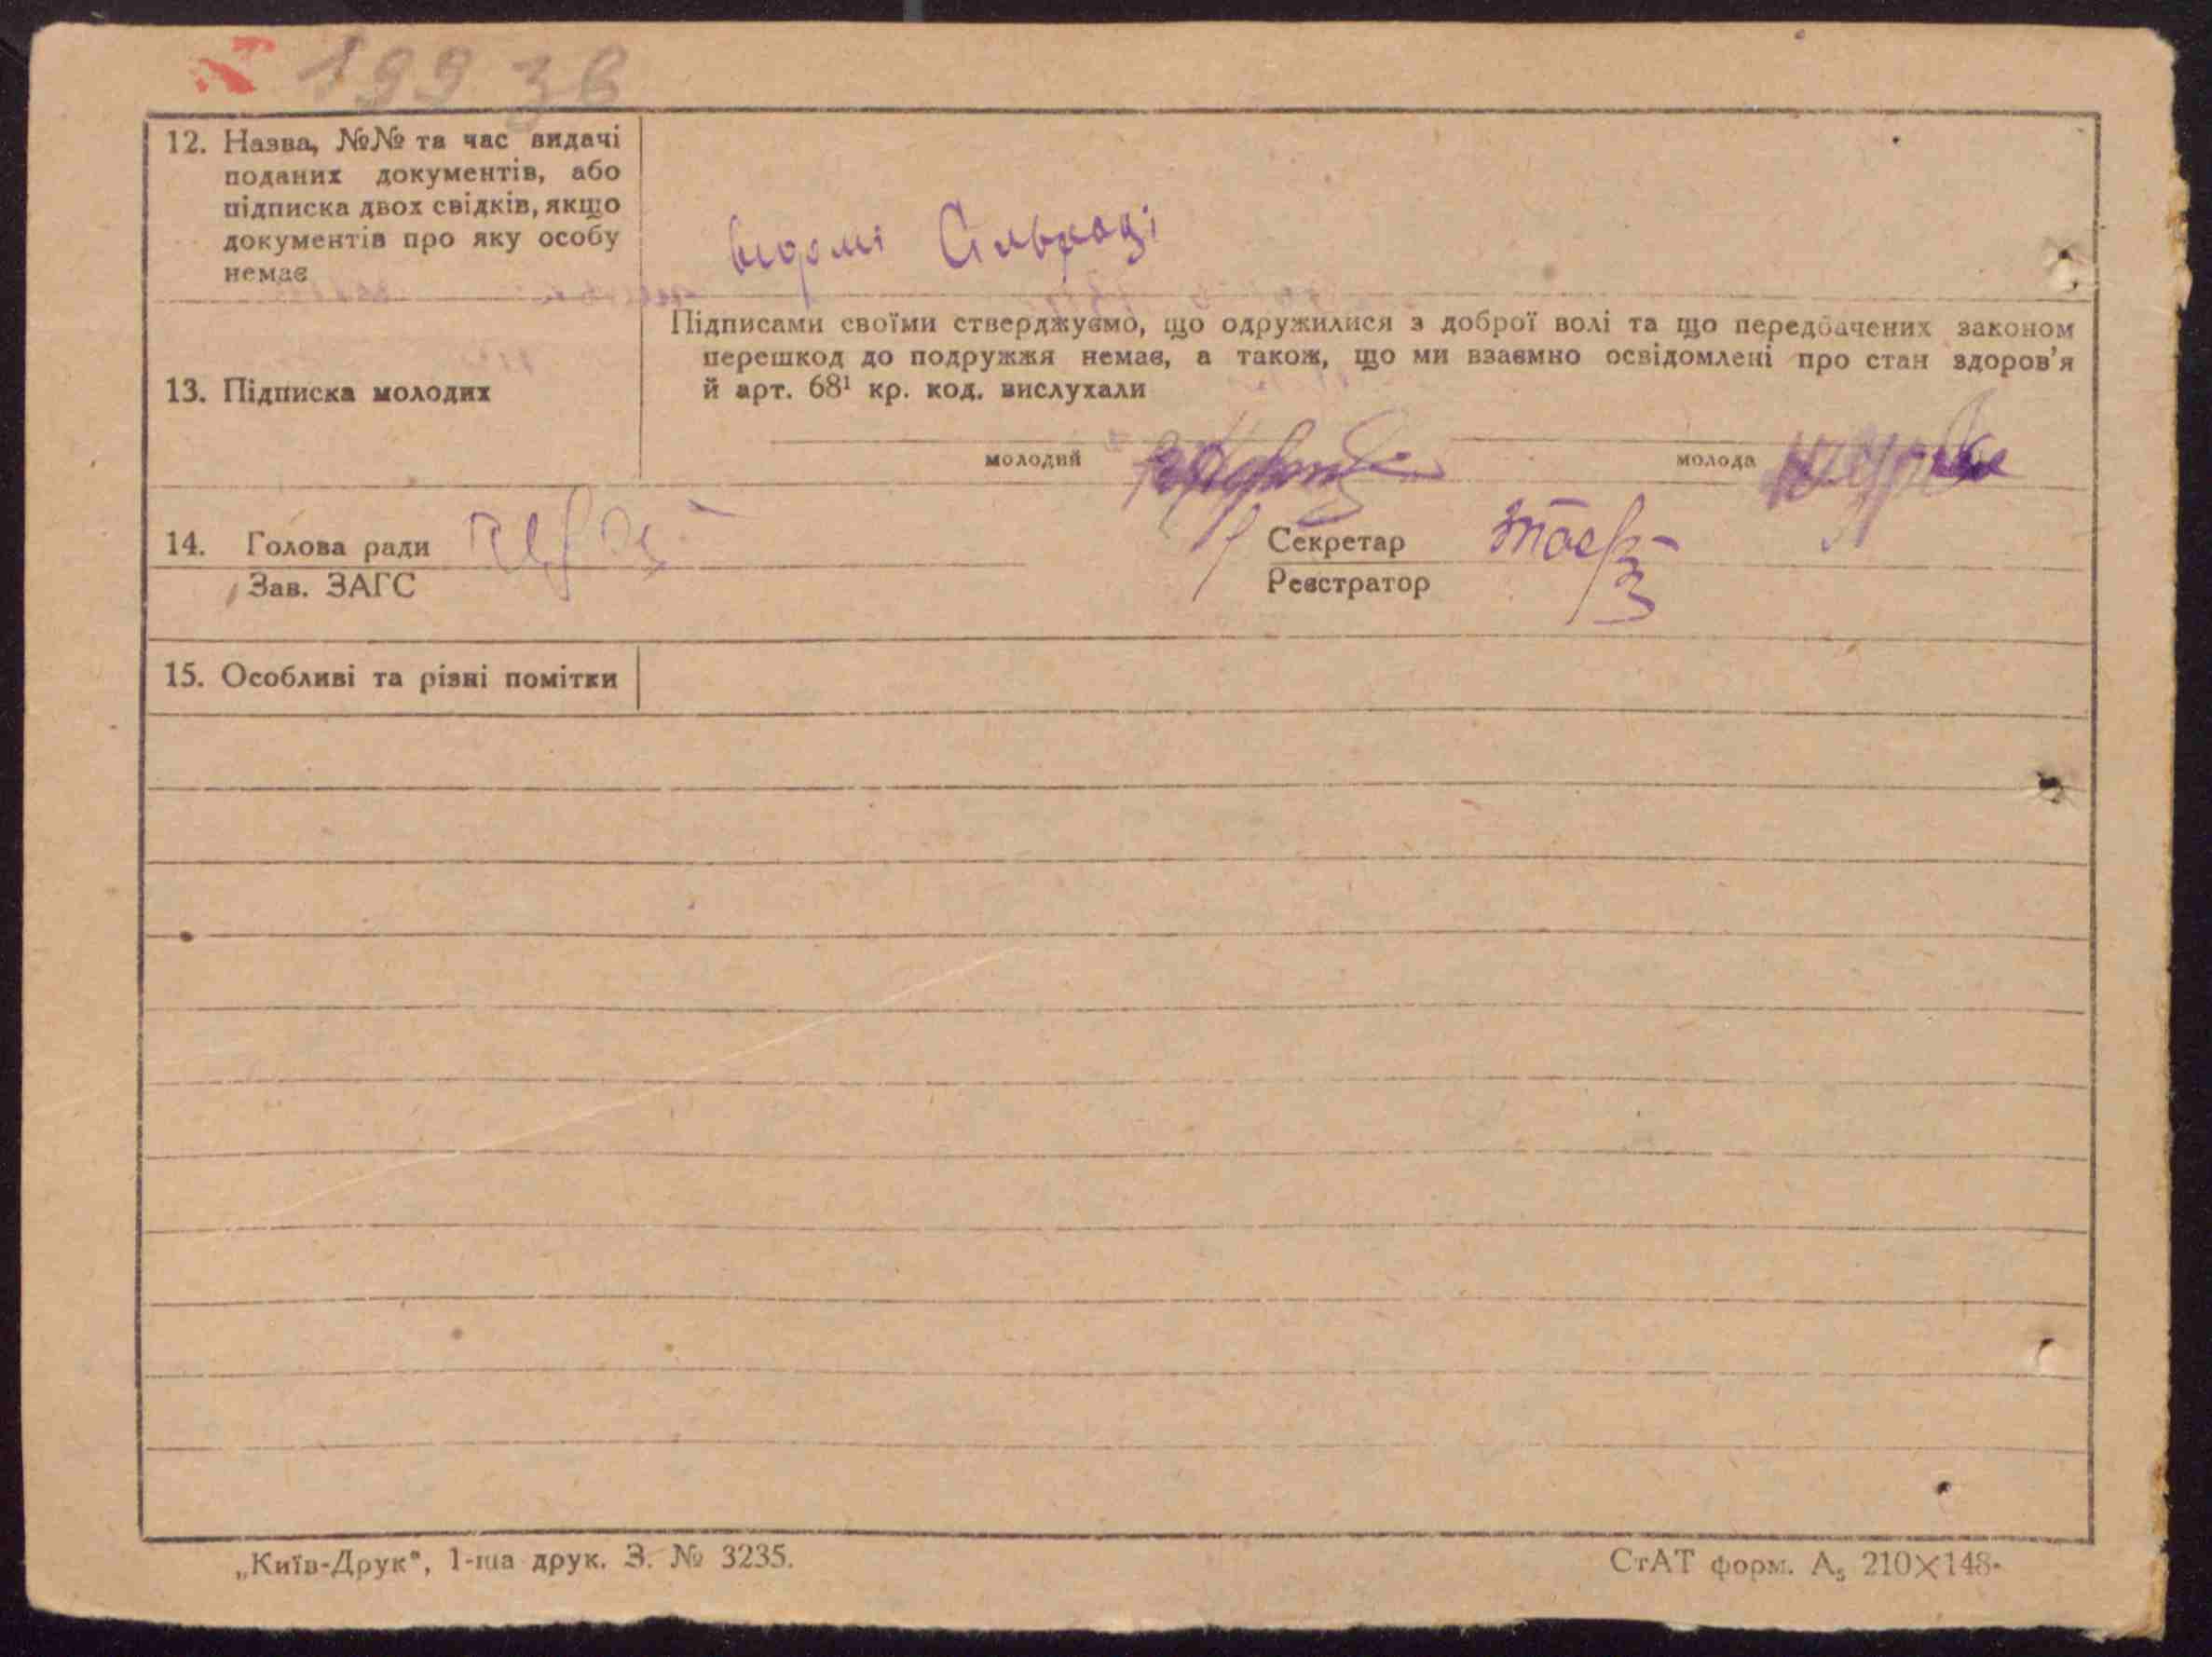 199 36
12. Назва, №№ та час видачі
поданих документів, або
підписка двох свідків, якщо
документів про яку особу
немає
відомі Сільраді
13. Підписка молодих
Підписами своїми стверджуємо, що одружилися з доброї волі та що передбачених законом
перешкод до подружжя немає, а також, що ми взаємно освідомлені про стан здоров'я
й арт. 68¹ кр. код. вислухали
молодий
молода
14. Голова ради
Секретар
Зав. ЗАГС
Реєстратор
15. Особливі та різні помітки
„Київ-Друк", 1-ша друк. З. № 3235.
СтАТ форм. А₅ 210×148.